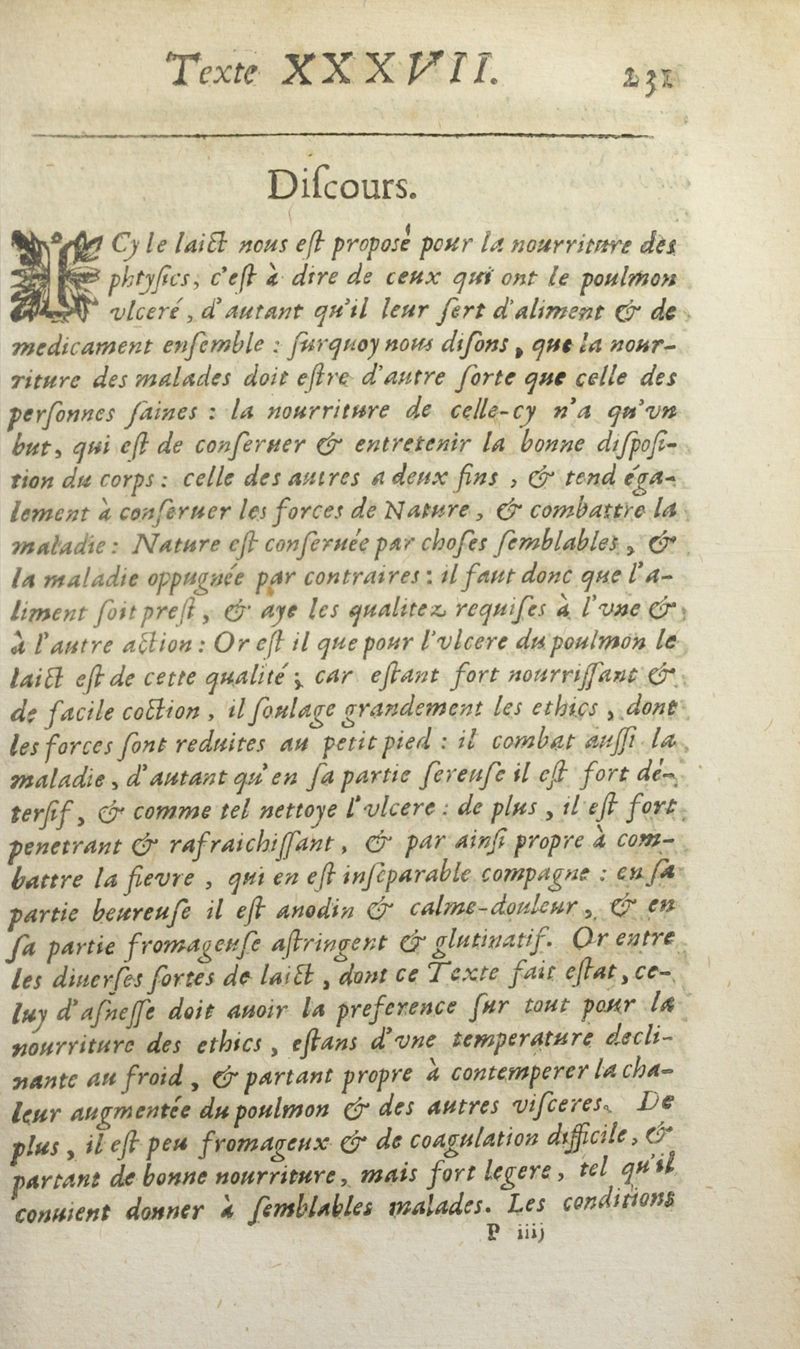 Texte XXXVII. 231
Diſcours.
ICy le laict nous eſt proposé pour la nourriture des
phtyſics, c'eſt à dire de ceux qui ont le poulmon
vlceré, d'autant qu'il leur ſert d'aliment & de
medicament enſemble : ſurquoy nous diſons, que la nour-
riture des malades doit eſtre d'autre ſorte que celle des
perſonnes ſaines : la nourriture de celle-cy n'a qu'vn
but, qui eſt de conſeruer & entretenir la bonne diſpoſi-
tion du corps : celle des autres a deux fins , & tend éga-
lement à conſeruer les forces de Nature , & combattre la
maladie : Nature eſt conſeruée par choſes ſemblables , &
la maladie oppugnée par contraires : il faut donc que l'a-
liment ſoit preſt , & aye les qualitez requiſes à l'vne &
à l'autre action : Or eſt il que pour l'vlcere du poulmon le
laict eſt de cette qualité ; car eſtant fort nourriſſant &
de facile coction , il ſoulage grandement les ethics , dont
les forces ſont reduites au petit pied : il combat auſſi la
maladie , d'autant qu'en ſa partie ſereuſe il eſt fort dé-
terſif , & comme tel nettoye l'vlcere : de plus , il eſt fort
penetrant & rafraichiſſant , & par ainſi propre à com-
battre la fievre , qui en eſt inſéparable compagne : en ſa
partie beureuſe il eſt anodin & calme-douleur , & en
ſa partie fromageuſe aſtringent & glutinatif. Or entre
les diuerſes ſortes de laict , dont ce Texte fait eſtat, ce-
luy d'aſneſſe doit auoir la preference ſur tout pour la
nourriture des ethics , eſtans d'vne temperature decli-
nante au froid , & partant propre à contemperer la cha-
leur augmentée du poulmon & des autres viſceres. De
plus , il eſt peu fromageux & de coagulation difficile, &
partant de bonne nourriture, mais fort legere , tel qu'il
conuient donner à ſemblables malades. Les conditions
P iiij